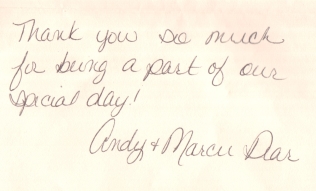 Thank you so much
for being a part of our
special day!
Andy + Marcie